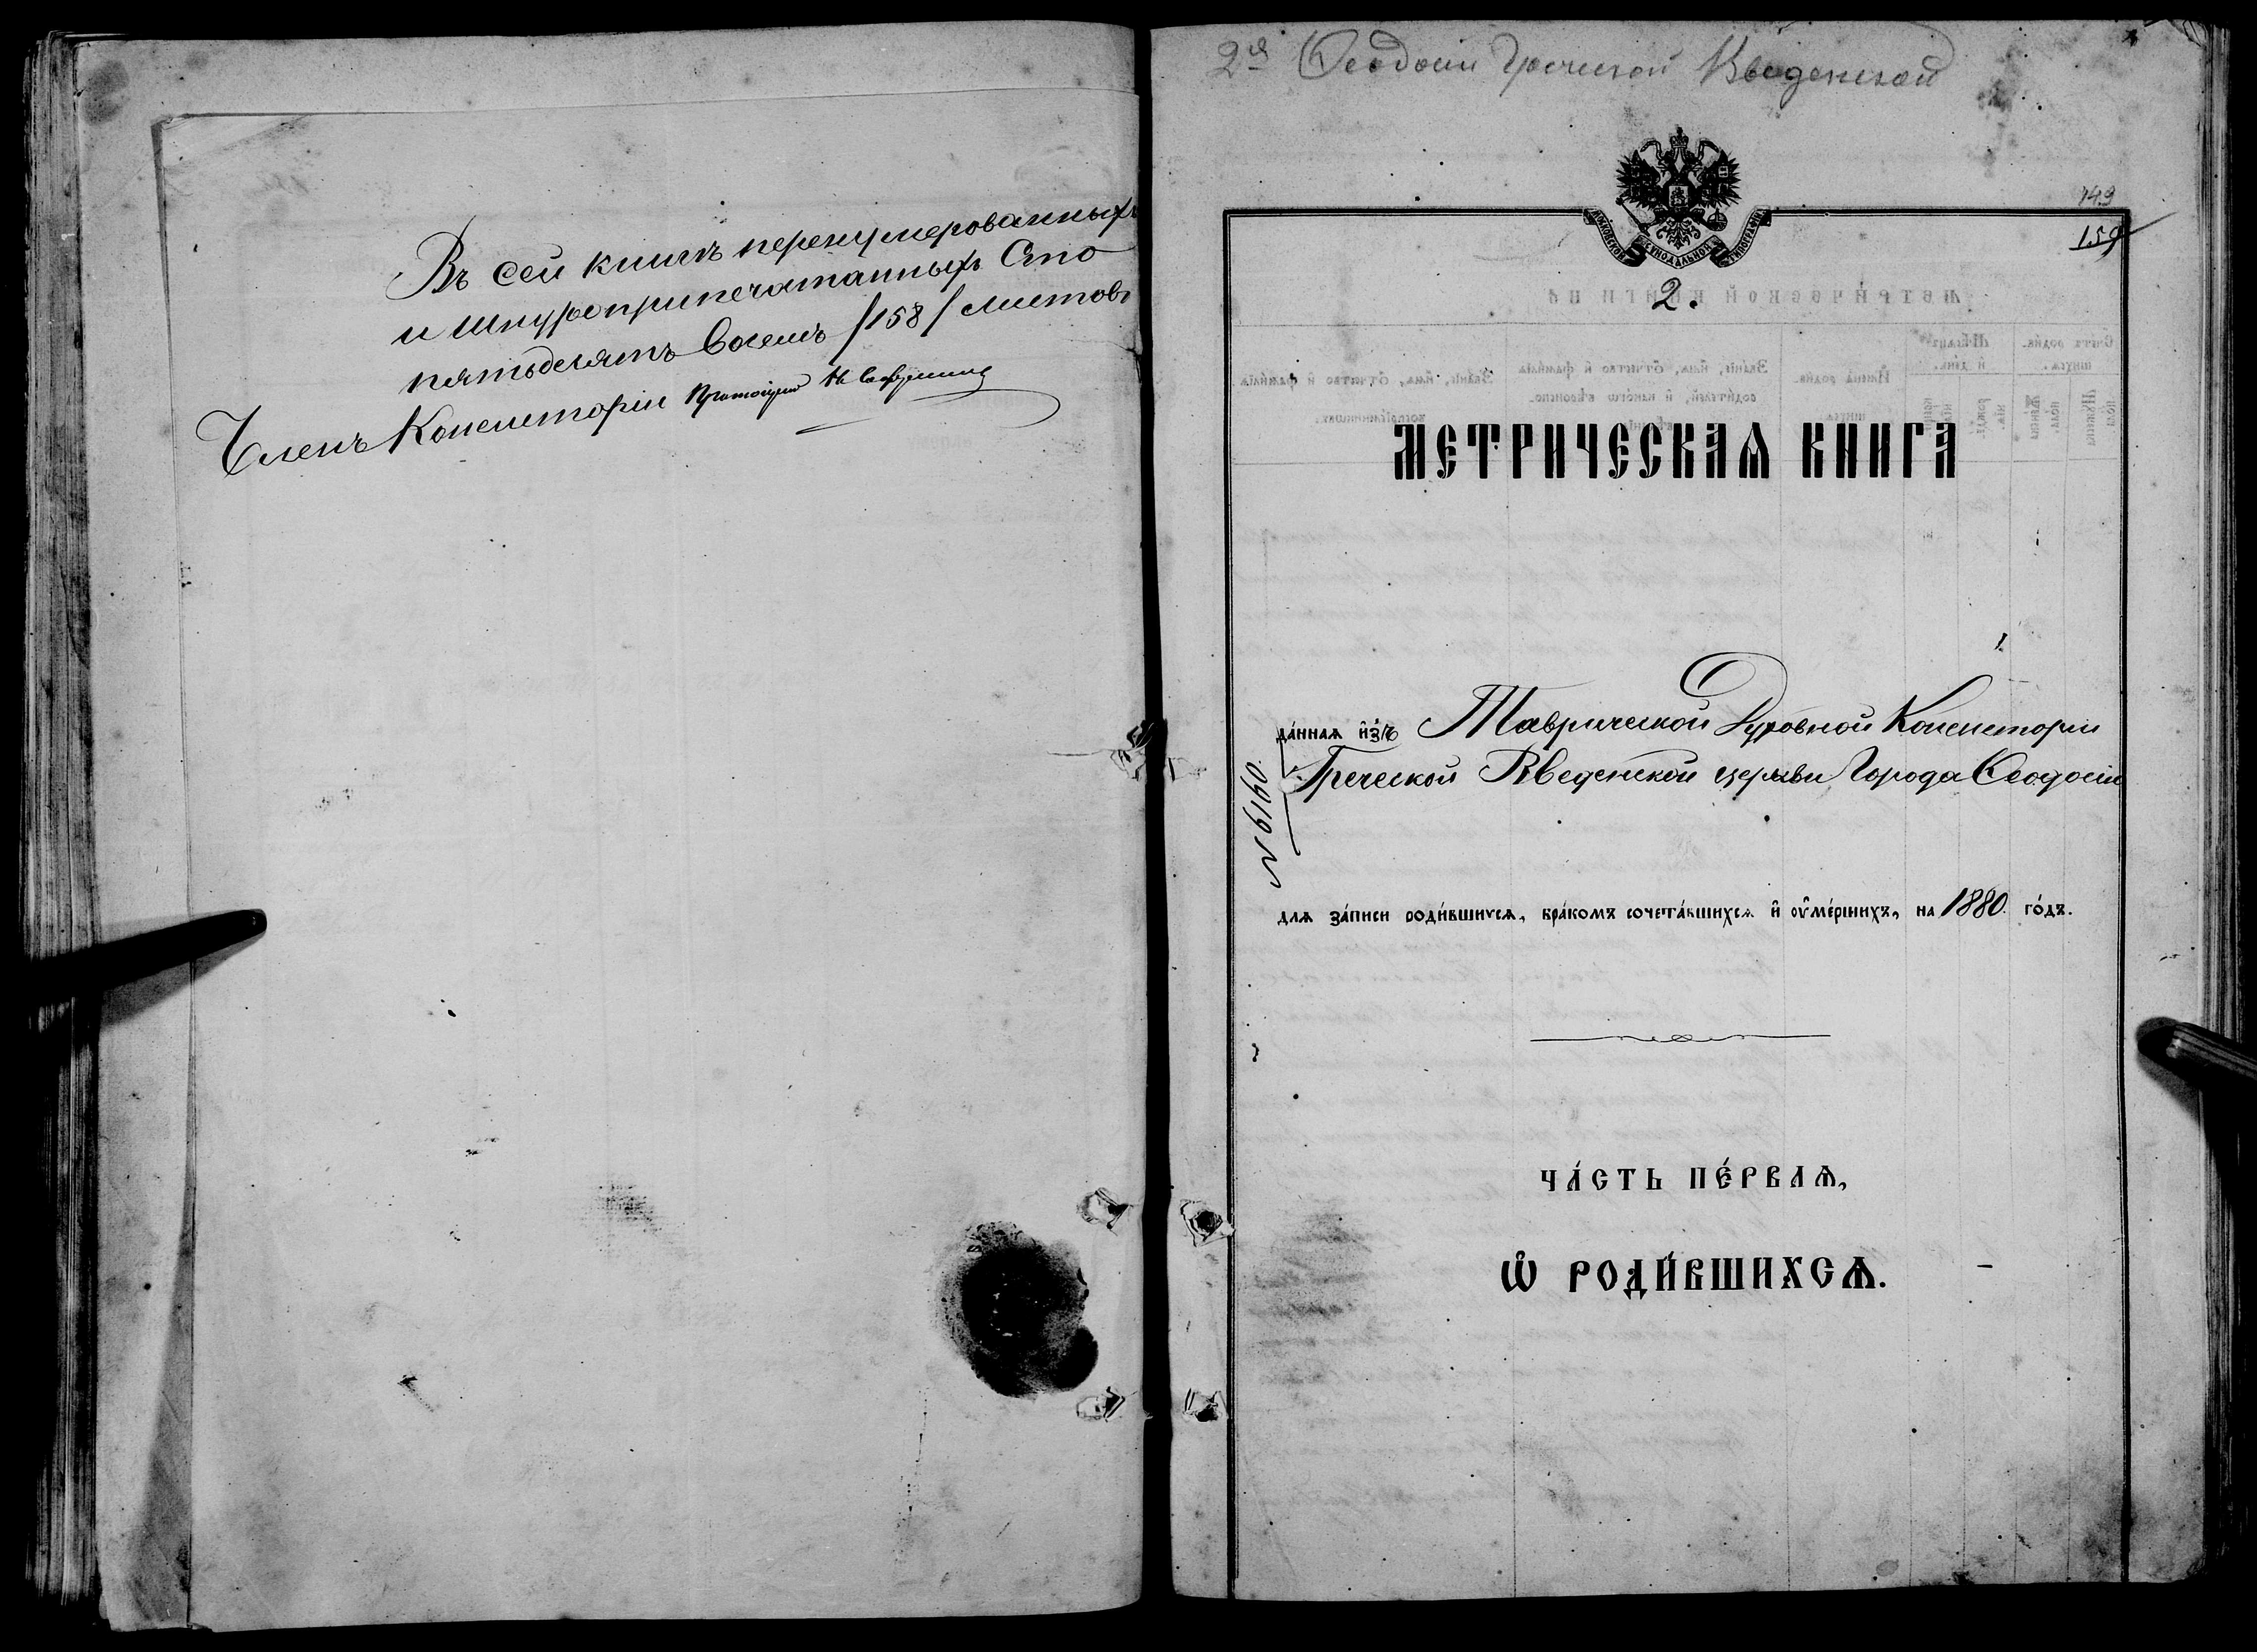 Въ сей книгѣ перенумерованныхъ
и шнуроприпечатанныхъ Сто
пятьдесятъ восемь /158/ листовъ
Членъ Консисторіи Протоіерей
2й Ѳеодосіи Греческой Введенской
МОСКОВСКОЙ СУНОДАЛЬНОЙ ТИПОГРАФІИ
149
159
2.
МЕТРИЧЕСКАѦ КНИГА
да́ннаѧ и҆зъ Таврической Духовной Консисторіи
Греческой Введенской церкви Города Ѳеодосіи
№ 6160.
длѧ за́писи роди́вшихсѧ, бра́комъ сочета́вшихсѧ и҆ ᲂу҆ме́ршихъ, на 1880. го́дъ.
ЧА́СТЬ ПЕ́РВАѦ,
Ѽ РОДИ́ВШИХСѦ.